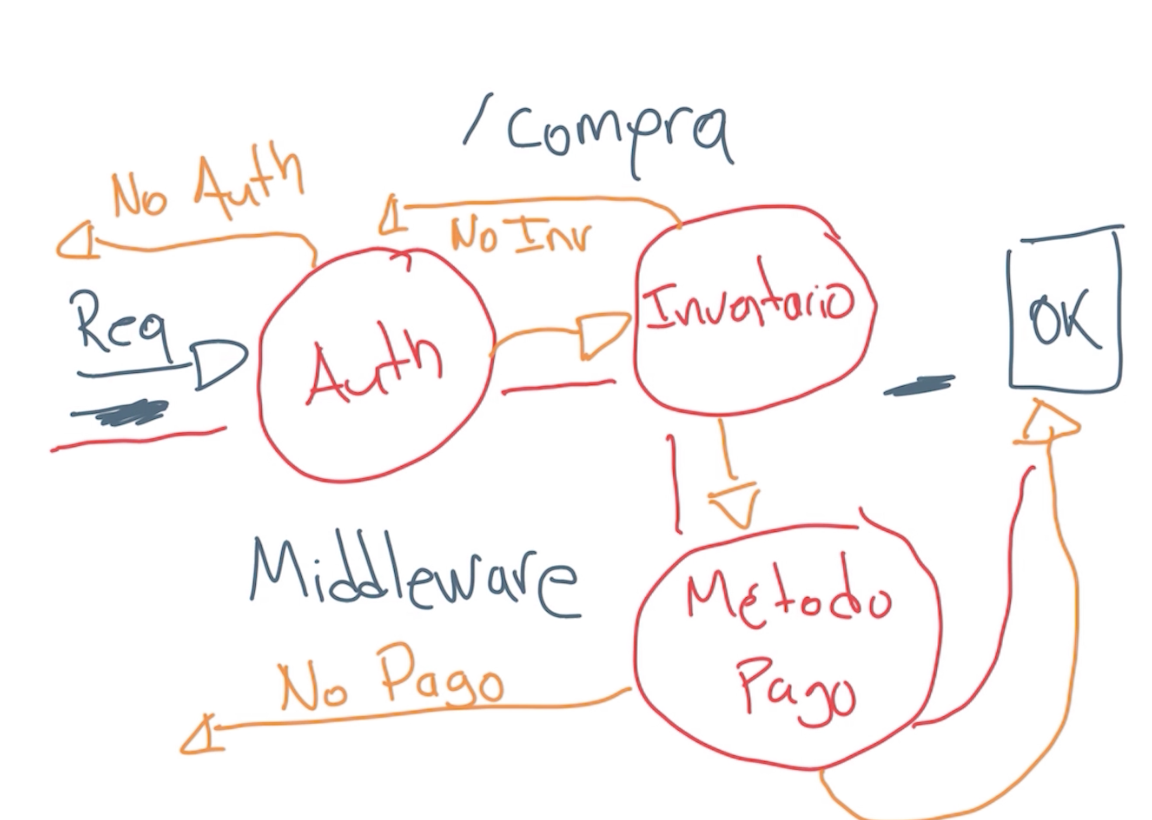 /compra
No Auth
No Inv
Req
Auth
Inventario
OK
Middleware
Método
Pago
No Pago